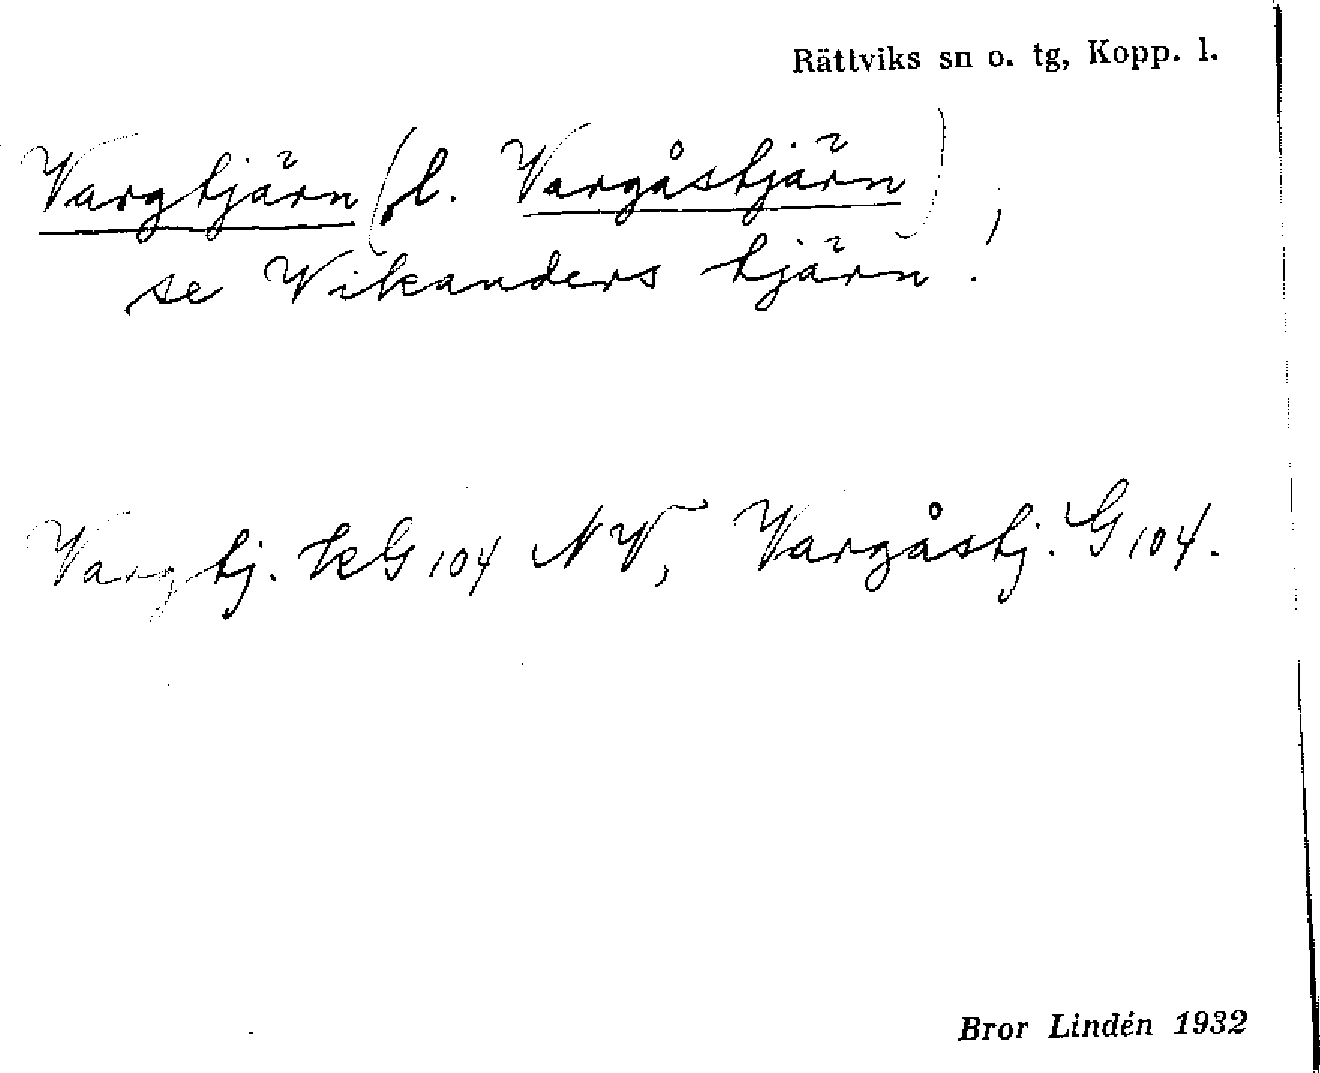 Rättviks sn o. tg, Kopp. l.
Vargtjärn (l. Vargåstjärn),
se Wikanders tjärn.
Vargtj. kG 104 NV, Vargåstj. G 104.
Bror Lindén 1932